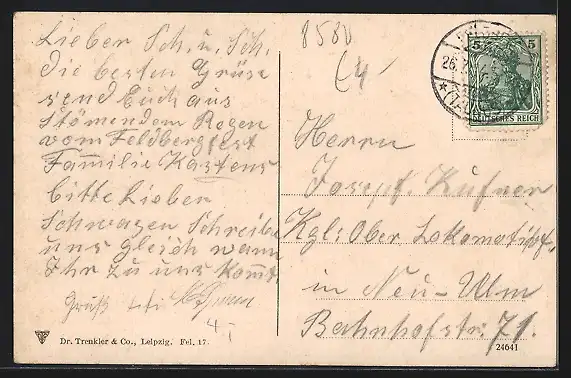 Lieber Sch. u. Sch.
die besten Grüse
send Euch aus
stömendem Regen
vom Feldbergfest
Familie Kastens
bitte Lieber
Schwagen Schreibe
uns gleich wann
Ihr zu uns komt
Gruß
Dr. Trenkler & Co., Leipzig. Fel. 17.
8580
5 5
DEUTSCHES REICH
26.
Herrn
Josept. Kufner
Kgl: Ober Lokomotivf.
in Neu-Ulm
Bahnhofstr. 71.
24641